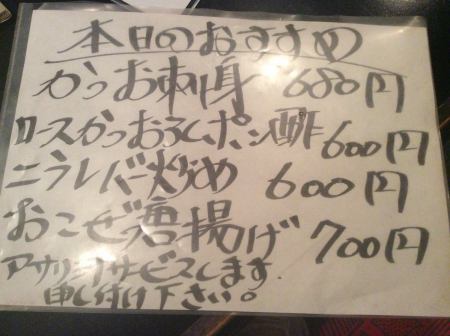 本日のおすすめ
かつお刺身 680円
ロースかつおろしポン酢 600円
ニラレバー炒め 600円
おこぜ唐揚げ 700円
アサリ汁サービスします
申し付け下さい。